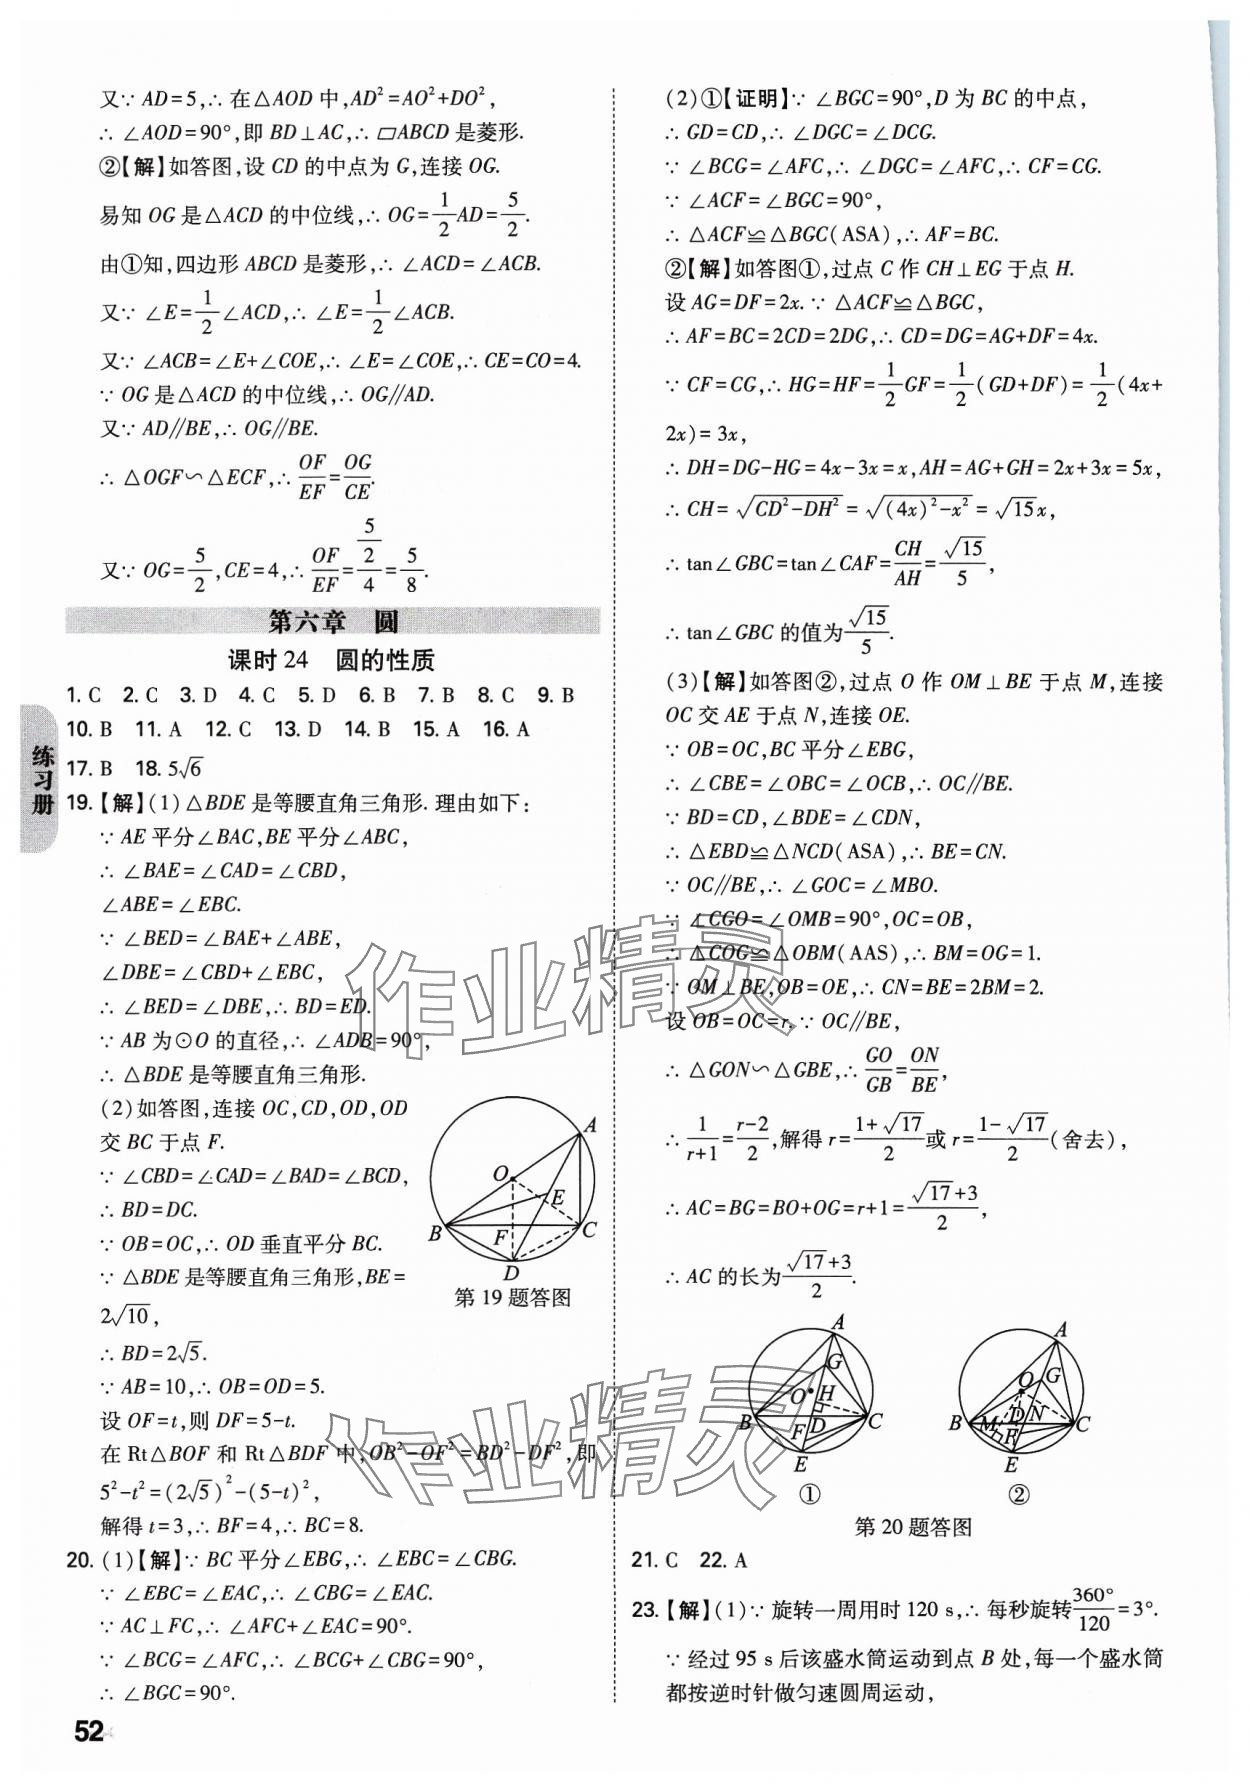 又∵ AD=5,∴ 在△AOD 中,AD²=AO²+DO²,
∴ ∠AOD=90°,即 BD⊥AC,∴ ▱ABCD 是菱形.
②【解】如答图,设 CD 的中点为 G,连接 OG.
易知 OG 是△ACD 的中位线,∴ OG=1/2 AD=5/2.
由①知,四边形 ABCD 是菱形,∴ ∠ACD=∠ACB.
又∵ ∠E=1/2∠ACD,∴ ∠E=1/2∠ACB.
又∵ ∠ACB=∠E+∠COE,∴ ∠E=∠COE,∴ CE=CO=4.
∵ OG 是△ACD 的中位线,∴ OG∥AD.
又∵ AD∥BE,∴ OG∥BE.
∴ △OGF∽△ECF,∴ OF/EF=OG/CE.
又∵ OG=5/2,CE=4,∴ OF/EF=(5/2)/4=5/8.
第六章 圆
课时 24 圆的性质
1. C 2. C 3. D 4. C 5. D 6. B 7. B 8. C 9. B
10. B 11. A 12. C 13. D 14. B 15. A 16. A
17. B 18. 5√6
19.【解】(1)△BDE 是等腰直角三角形. 理由如下:
∵ AE 平分∠BAC,BE 平分∠ABC,
∴ ∠BAE=∠CAD=∠CBD,
∠ABE=∠EBC.
∵ ∠BED=∠BAE+∠ABE,
∠DBE=∠CBD+∠EBC,
∴ ∠BED=∠DBE,∴ BD=ED.
∵ AB 为⊙O 的直径,∴ ∠ADB=90°,
∴ △BDE 是等腰直角三角形.
(2)如答图,连接 OC,CD,OD,OD
交 BC 于点 F.
∵ ∠CBD=∠CAD=∠BAD=∠BCD,
∴ BD=DC.
∵ OB=OC,∴ OD 垂直平分 BC.
∵ △BDE 是等腰直角三角形,BE=
2√10,
∴ BD=2√5.
∵ AB=10,∴ OB=OD=5.
设 OF=t,则 DF=5-t.
在 Rt△BOF 和 Rt△BDF 中,OB²-OF²=BD²-DF²,即
5²-t²=(2√5)²-(5-t)²,
解得 t=3,∴ BF=4,∴ BC=8.
A
O
E
B
F
C
D
第 19 题答图
20. (1)【解】∵ BC 平分∠EBG,∴ ∠EBC=∠CBG.
∵ ∠EBC=∠EAC,∴ ∠CBG=∠EAC.
∵ AC⊥FC,∴ ∠AFC+∠EAC=90°.
∵ ∠BCG=∠AFC,∴ ∠BCG+∠CBG=90°,
∴ ∠BGC=90°.
练习册
52
(2)①【证明】∵ ∠BGC=90°,D 为 BC 的中点,
∴ GD=CD,∴ ∠DGC=∠DCG.
∵ ∠BCG=∠AFC,∴ ∠DGC=∠AFC,∴ CF=CG.
∵ ∠ACF=∠BGC=90°,
∴ △ACF≌△BGC(ASA),∴ AF=BC.
②【解】如答图①,过点 C 作 CH⊥EG 于点 H.
设 AG=DF=2x.∵ △ACF≌△BGC,
∴ AF=BC=2CD=2DG,∴ CD=DG=AG+DF=4x.
∵ CF=CG,∴ HG=HF=1/2 GF=1/2(GD+DF)=1/2(4x+
2x)=3x,
∴ DH=DG-HG=4x-3x=x,AH=AG+GH=2x+3x=5x,
∴ CH=√(CD²-DH²)=√((4x)²-x²)=√15x,
∴ tan∠GBC=tan∠CAF=CH/AH=√15/5,
∴ tan∠GBC 的值为√15/5.
(3)【解】如答图②,过点 O 作 OM⊥BE 于点 M,连接
OC 交 AE 于点 N,连接 OE.
∵ OB=OC,BC 平分∠EBG,
∴ ∠CBE=∠OBC=∠OCB,∴ OC∥BE.
∵ BD=CD,∠BDE=∠CDN,
∴ △EBD≌△NCD(ASA),∴ BE=CN.
∵ OC∥BE,∴ ∠GOC=∠MBO.
∵ ∠CGO=∠OMB=90°,OC=OB,
∴ △COG≌△OBM(AAS),∴ BM=OG=1.
∵ OM⊥BE,OB=OE,∴ CN=BE=2BM=2.
设 OB=OC=r.∵ OC∥BE,
∴ △GON∽△GBE,∴ GO/GB=ON/BE,
∴ 1/(r+1)=(r-2)/2,解得 r=(1+√17)/2或 r=(1-√17)/2(舍去),
∴ AC=BG=BO+OG=r+1=(√17+3)/2,
∴ AC 的长为(√17+3)/2.
A
G
O
H
B
F
D
C
E
①
A
O
G
B
M
D
N
F
C
E
②
第 20 题答图
21. C 22. A
23.【解】(1)∵ 旋转一周用时 120 s,∴ 每秒旋转360°/120=3°.
∵ 经过 95 s 后该盛水筒运动到点 B 处,每一个盛水筒
都按逆时针做匀速圆周运动,
作业精灵
作业精灵